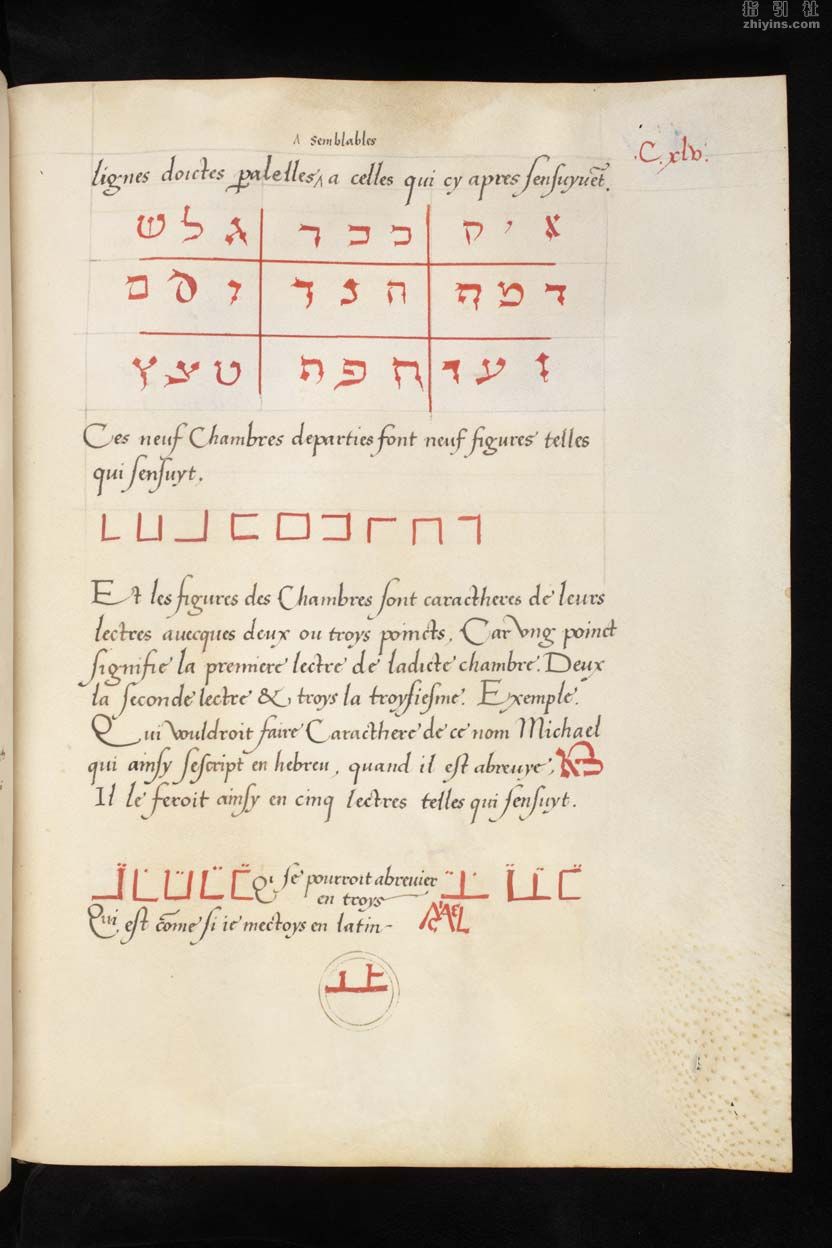 指引社
zhiyins.com
semblables
C.xlv.
lignes doictes ꝑalelles ‸ a celles qui cy apres sensuyuẽt.
א י ק ב כ ר ג ל ש
ד מ ת ה נ ך ו ס ם
ז ע ן ח פ ף ט צ ץ
Ces neuf Chambres departies font neuf figures telles
qui sensuyt.
Et les figures des Chambres sont caractheres de leurs
lectres auecques deux ou troys poincts. Car vng poinct
signifie la premiere lectre de ladicte chambre. Deux
la seconde lectre & troys la troysiesme. Exemple.
Qui vouldroit faire Caracthere de ce nom Michael
qui ainsy sescript en hebreu, quand il est abreuye,
Il le feroit ainsy en cinq lectres telles qui sensuyt.
Qi se pourroit abreuier
en troys
Qui est cõme si ie mectoys en latin-